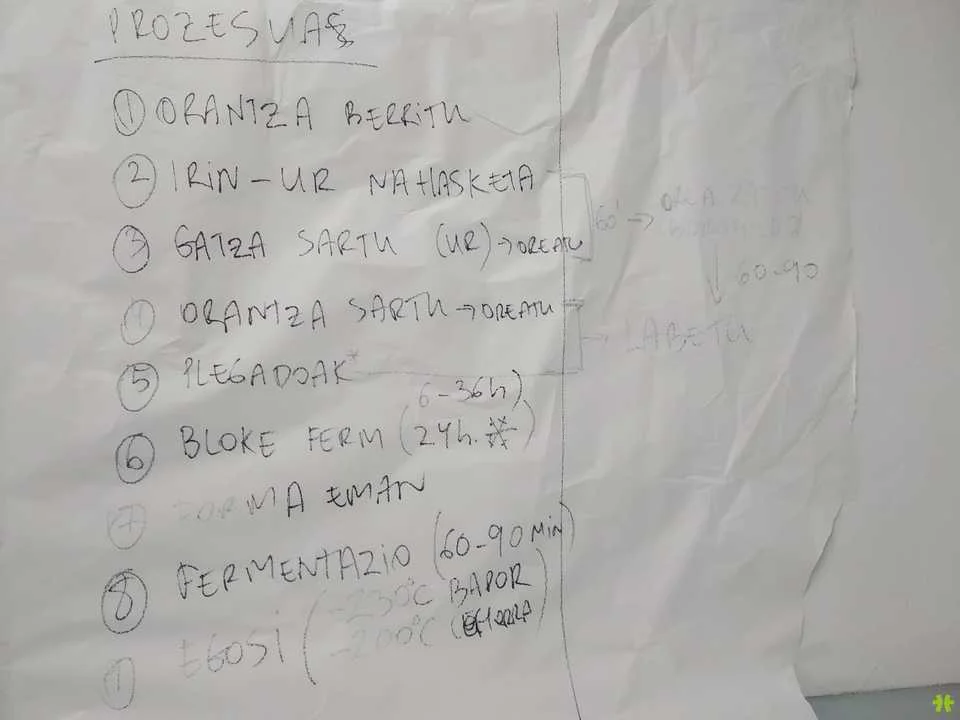 PROZESUAK
① ORANTZA BERRITU
② IRIN-UR NAHASKETA
③ GATZA SARTU (UR) → OREATU
60' → OREA
↓ 60-90
④ ORANTZA SARTU → OREATU
→ LABETU
⑤ PLEGADOAK*
(6-36h)
⑥ BLOKE FERM (24h. *)
⑦ FORMA EMAN
⑧ FERMENTAZIO (60-90 MIN)
EGOSI (-230°C BAPOR
-200°C